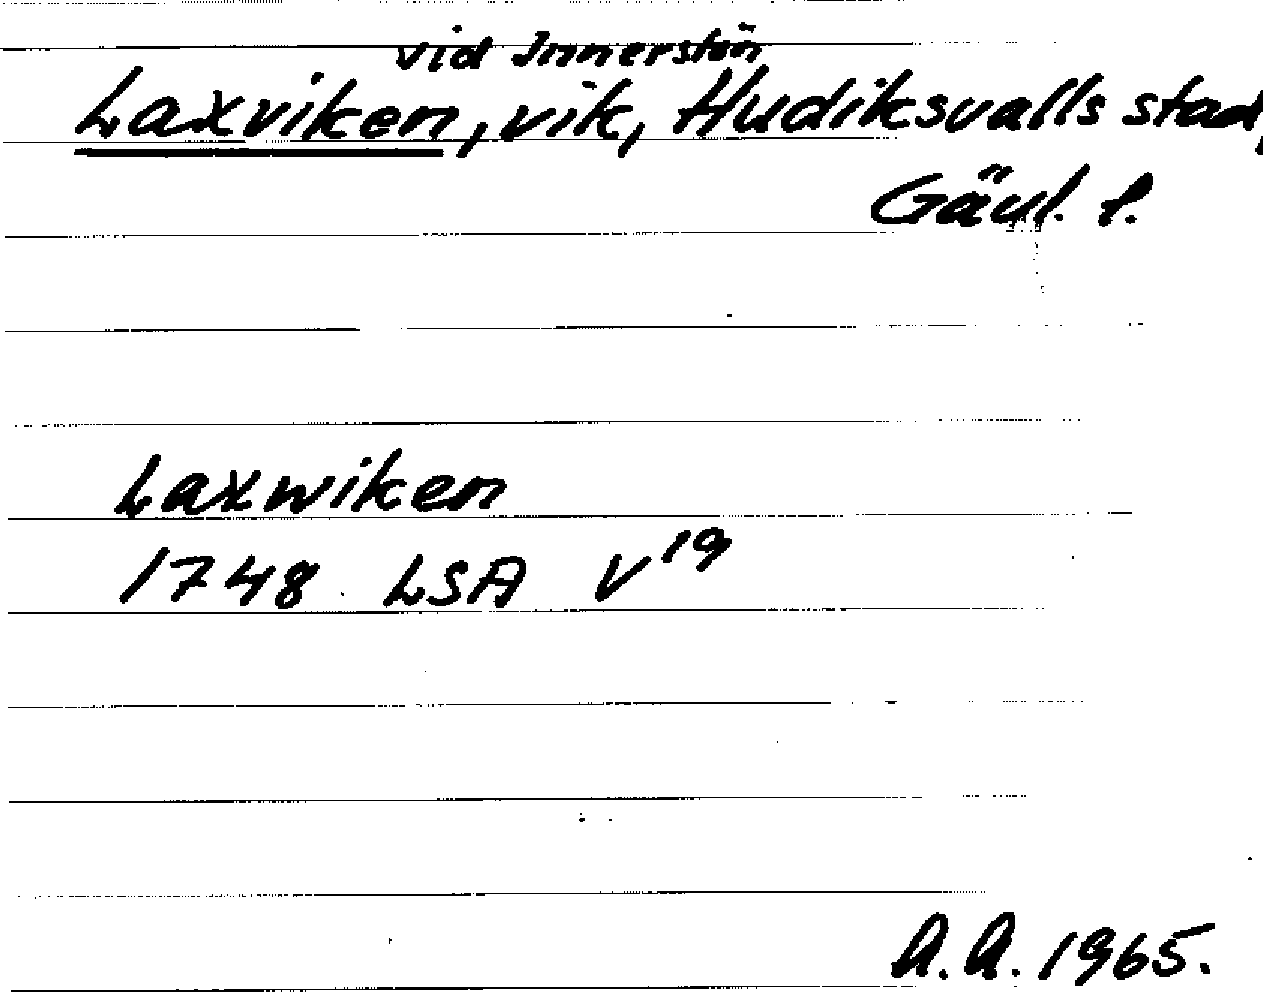 vid Innerstön
Laxviken, vik, Hudiksvalls stad,
Gävl. l.
Laxwiken
1748 LSA V19
A.A. 1965.